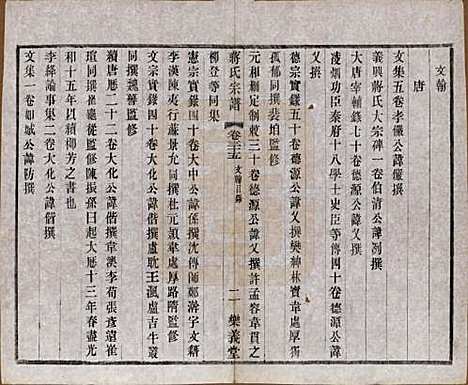 文翰
唐
文集五卷李儼公諱儼撰
義興蔣氏大宗碑一卷伯清公諱洌撰
大唐宰輔錄七十卷德源公諱乂撰
凌烟功臣秦府十八學士史臣等傳四十卷德源公諱
乂撰
德宗實錄五十卷德源公諱乂撰樊紳林寶韋處厚獨
孤郁同撰裴垍監修
元和刪定制敕三十卷德源公諱乂撰許孟容韋貫之
蔣氏宗譜
卷二十五
文翰目錄
二
樂義堂
柳登等同集
憲宗實錄四十卷大中公諱係撰沈傳師鄭澣宇文籍
李漢陳夷行蘇景允同撰杜元穎韋處厚路隋監修
文宗實錄四十卷大化公諱偕撰盧耽王渢盧吉牛叢
同撰魏謩監修
續唐曆二十二卷大化公諱偕撰韋澳李荀張彥遠崔
瑄同撰崔龜從監修陳振孫曰起大曆十三年春盡元
和十五年以續柳芳之書也
李絳論事集二卷大化公諱偕撰
文集一卷如城公諱防撰